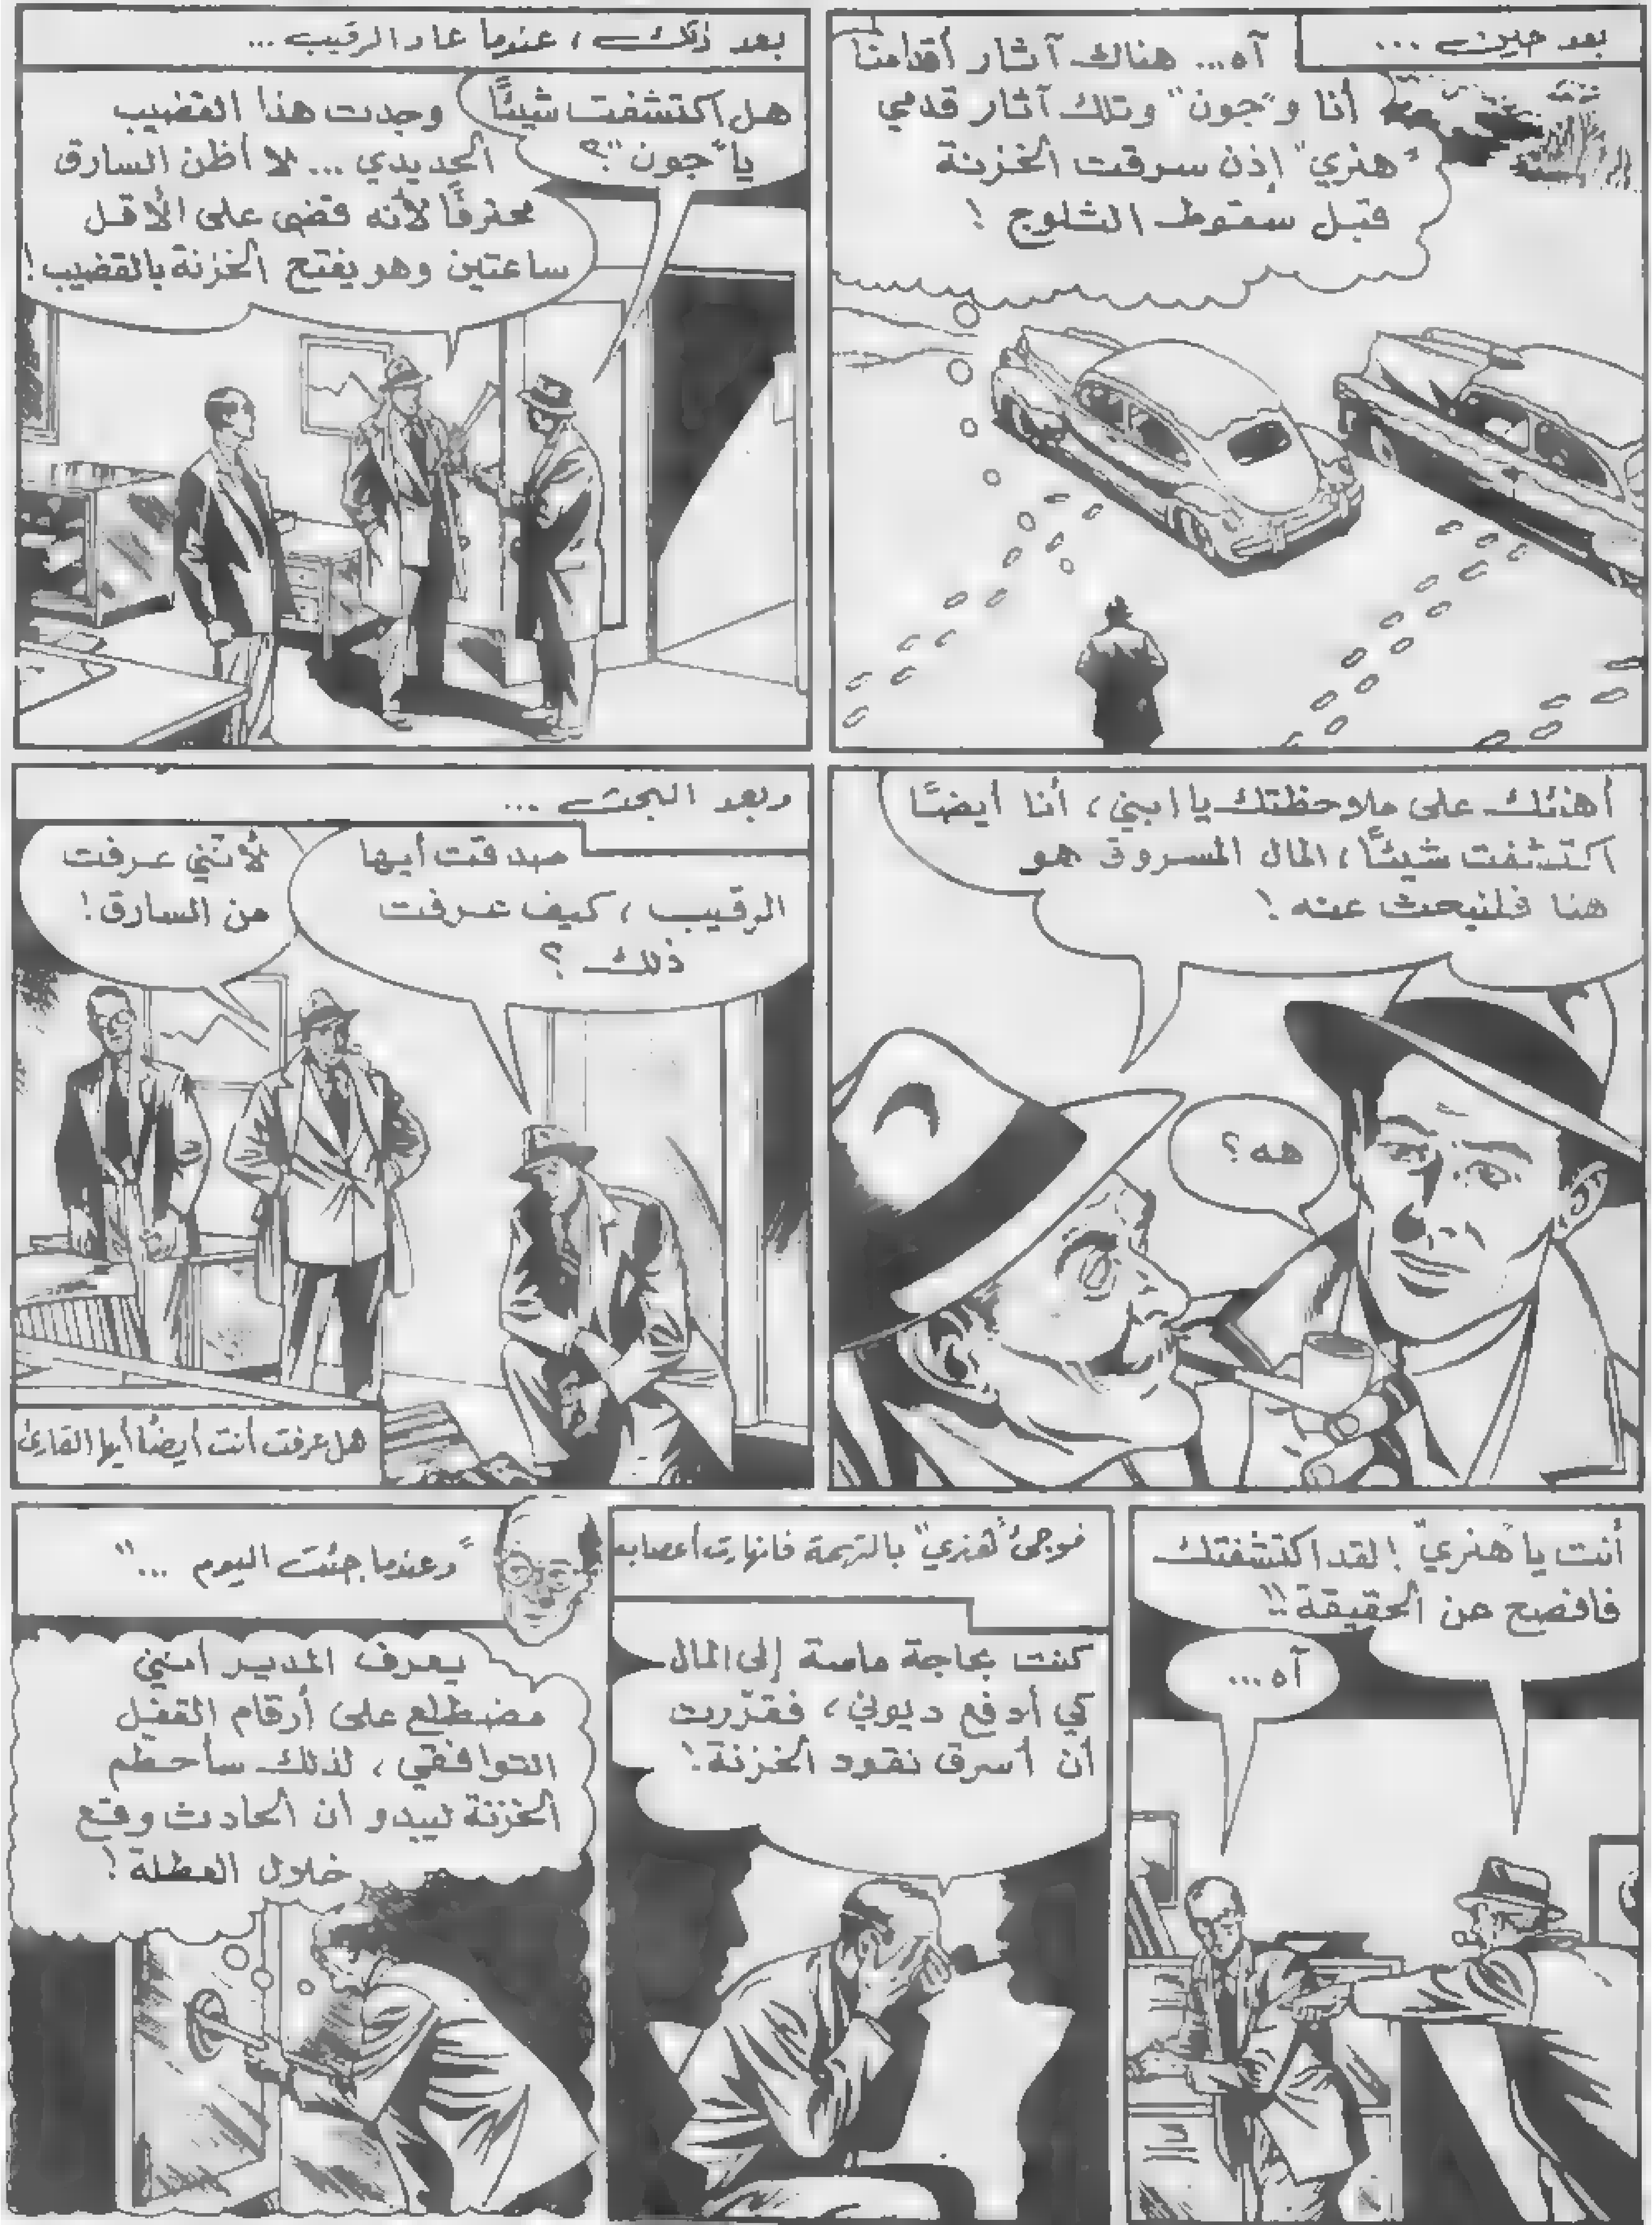 بعد حين ...
آه... هناك آثار أقدامنا
أنا و"جون" وتلك آثار قدمي
"هنري" إذن سرقت الخزنة
قبل سقوط الثلوج !
بعد ذلك ، عندما عاد الرقيب ...
هل اكتشفت شيئًا
يا "جون"؟
وجدت هذا القضيب
الحديدي ... لا أظن السارق
محترفًا لأنه قضى على الأقل
ساعتين وهو يفتح الخزنة بالقضيب !
أهنئك على ملاحظتك يا ابني ، أنا أيضًا
اكتشفت شيئًا ، المال المسروق هو
هنا فلنبحث عنه !
هه ؟
وبعد البحث ...
صدقت أيها
الرقيب ، كيف عرفت
ذلك ؟
لأنني عرفت
من السارق !
هل عرفت أنت أيضًا أيها القارئ
أنت يا "هنري" ! لقد اكتشفتك
فافصح عن الحقيقة !!
آه ...
فوجئ "هنري" بالتهمة فانهارت أعصابه
كنت بحاجة ماسة إلى المال
كي أدفع ديوني ، فقرّرت
أن أسرق نقود الخزنة !
"وعندما جئت اليوم ..."
يعرف المدير أنني
مضطلع على أرقام القفل
التوافقي ، لذلك سأحطّم
الخزنة ليبدو أن الحادث وقع
خلال العطلة !